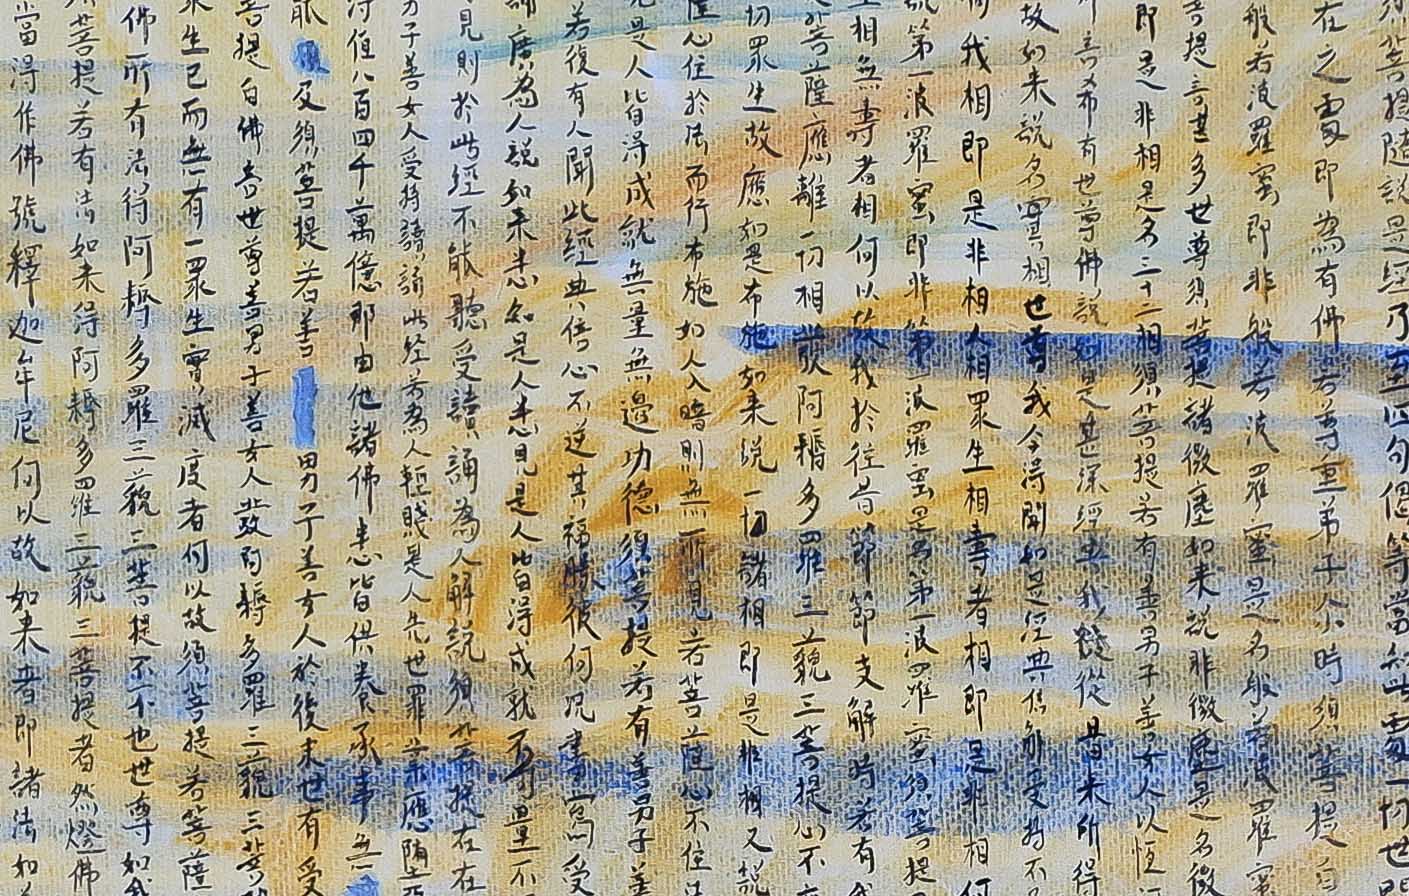 菩提隨說是經乃至四句偈等當知此處一切世
在之處即為有佛若尊重弟子尒時須菩提白
般若波羅蜜即非般若波羅蜜是名般若波羅蜜
菩提言甚多世尊須菩提諸微塵如来說非微塵是名微
即是非相是名三十二相須菩提若有善男子善女人以恒
言希有世尊佛說如是甚深經典我從昔来所得
故如来說名實相世尊我今得聞如是經典信解受持不
我相即是非相人相眾生相壽者相即是非相何
第一波羅蜜即非第一波羅蜜是名第一波羅蜜須菩提
生相無壽者相何以故我於往昔節節支解時若有我
菩薩應離一切相發阿耨多羅三藐三菩提心不
切眾生故應如是布施如来說一切諸相即是非相又說
心住於法而行布施如人入暗則無所見若菩薩心不住法
見是人皆得成就無量無邊功德須菩提若有善男子善
若復有人聞此經典信心不逆其福勝彼何况書寫受
誦廣為人說如来悉知是人悉見是人皆得成就不可量不
見則於此經不能聽受讀誦為人解說須菩提在在
男子善女人受持讀誦此經若為人輕賤是人先世罪業應堕
得值八百四千萬億那由他諸佛悉皆供養承事無
及須菩提若善男子善女人於後末世有受
菩提白佛言世尊善男子善女人發阿耨多羅三藐三菩提
眾生已而無有一眾生實滅度者何以故須菩提若菩薩
佛所有法得阿耨多羅三藐三菩提不不也世尊如我
菩提若有法如来得阿耨多羅三藐三菩提者然燈佛
當得作佛號釋迦牟尼何以故如来者即諸法如